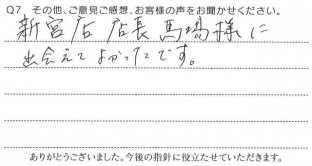 Q7. その他、ご意見ご感想、お客様の声をお聞かせください。
新宮店 店長 馬場様に
出会えてよかったです。
ありがとうございました。今後の指針に役立たせていただきます。